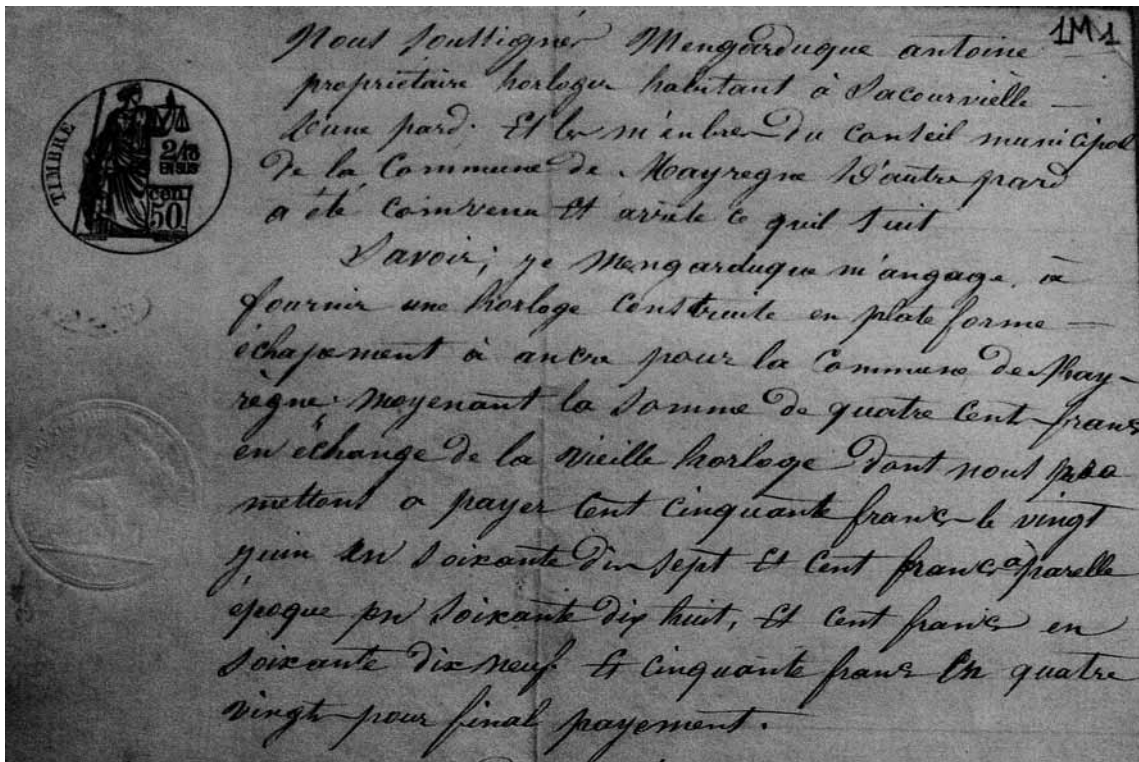 1M1
Nous soussigner Mengarduque antoine
propriétaire horloger habitant à Sacourvielle
D'une pard. Et les m'enbres Du Conseil municipal
De la Commune De Mayregne D'autre pard
a été comvenu Et arrete ce quil suit
Savoir; je Mengarduque m'angage à
fournir une horloge Construite en plate forme
échapement à ancre pour la Commune De May-
règne. Moyenant la Somme de quatre Cent franc
en échange de la vieille horloge Dont nous pro
mettont a payer Cent Cinquante franc le vingt
juin en Soixante Dix Sept Et Cent franc à parelle
époque en Soixante Dix huit, Et Cent franc en
Soixante Dix neuf Et Cinquante franc En quatre
vingt pour final payement.
TIMBRE
2/10
EN SUS
50
cen